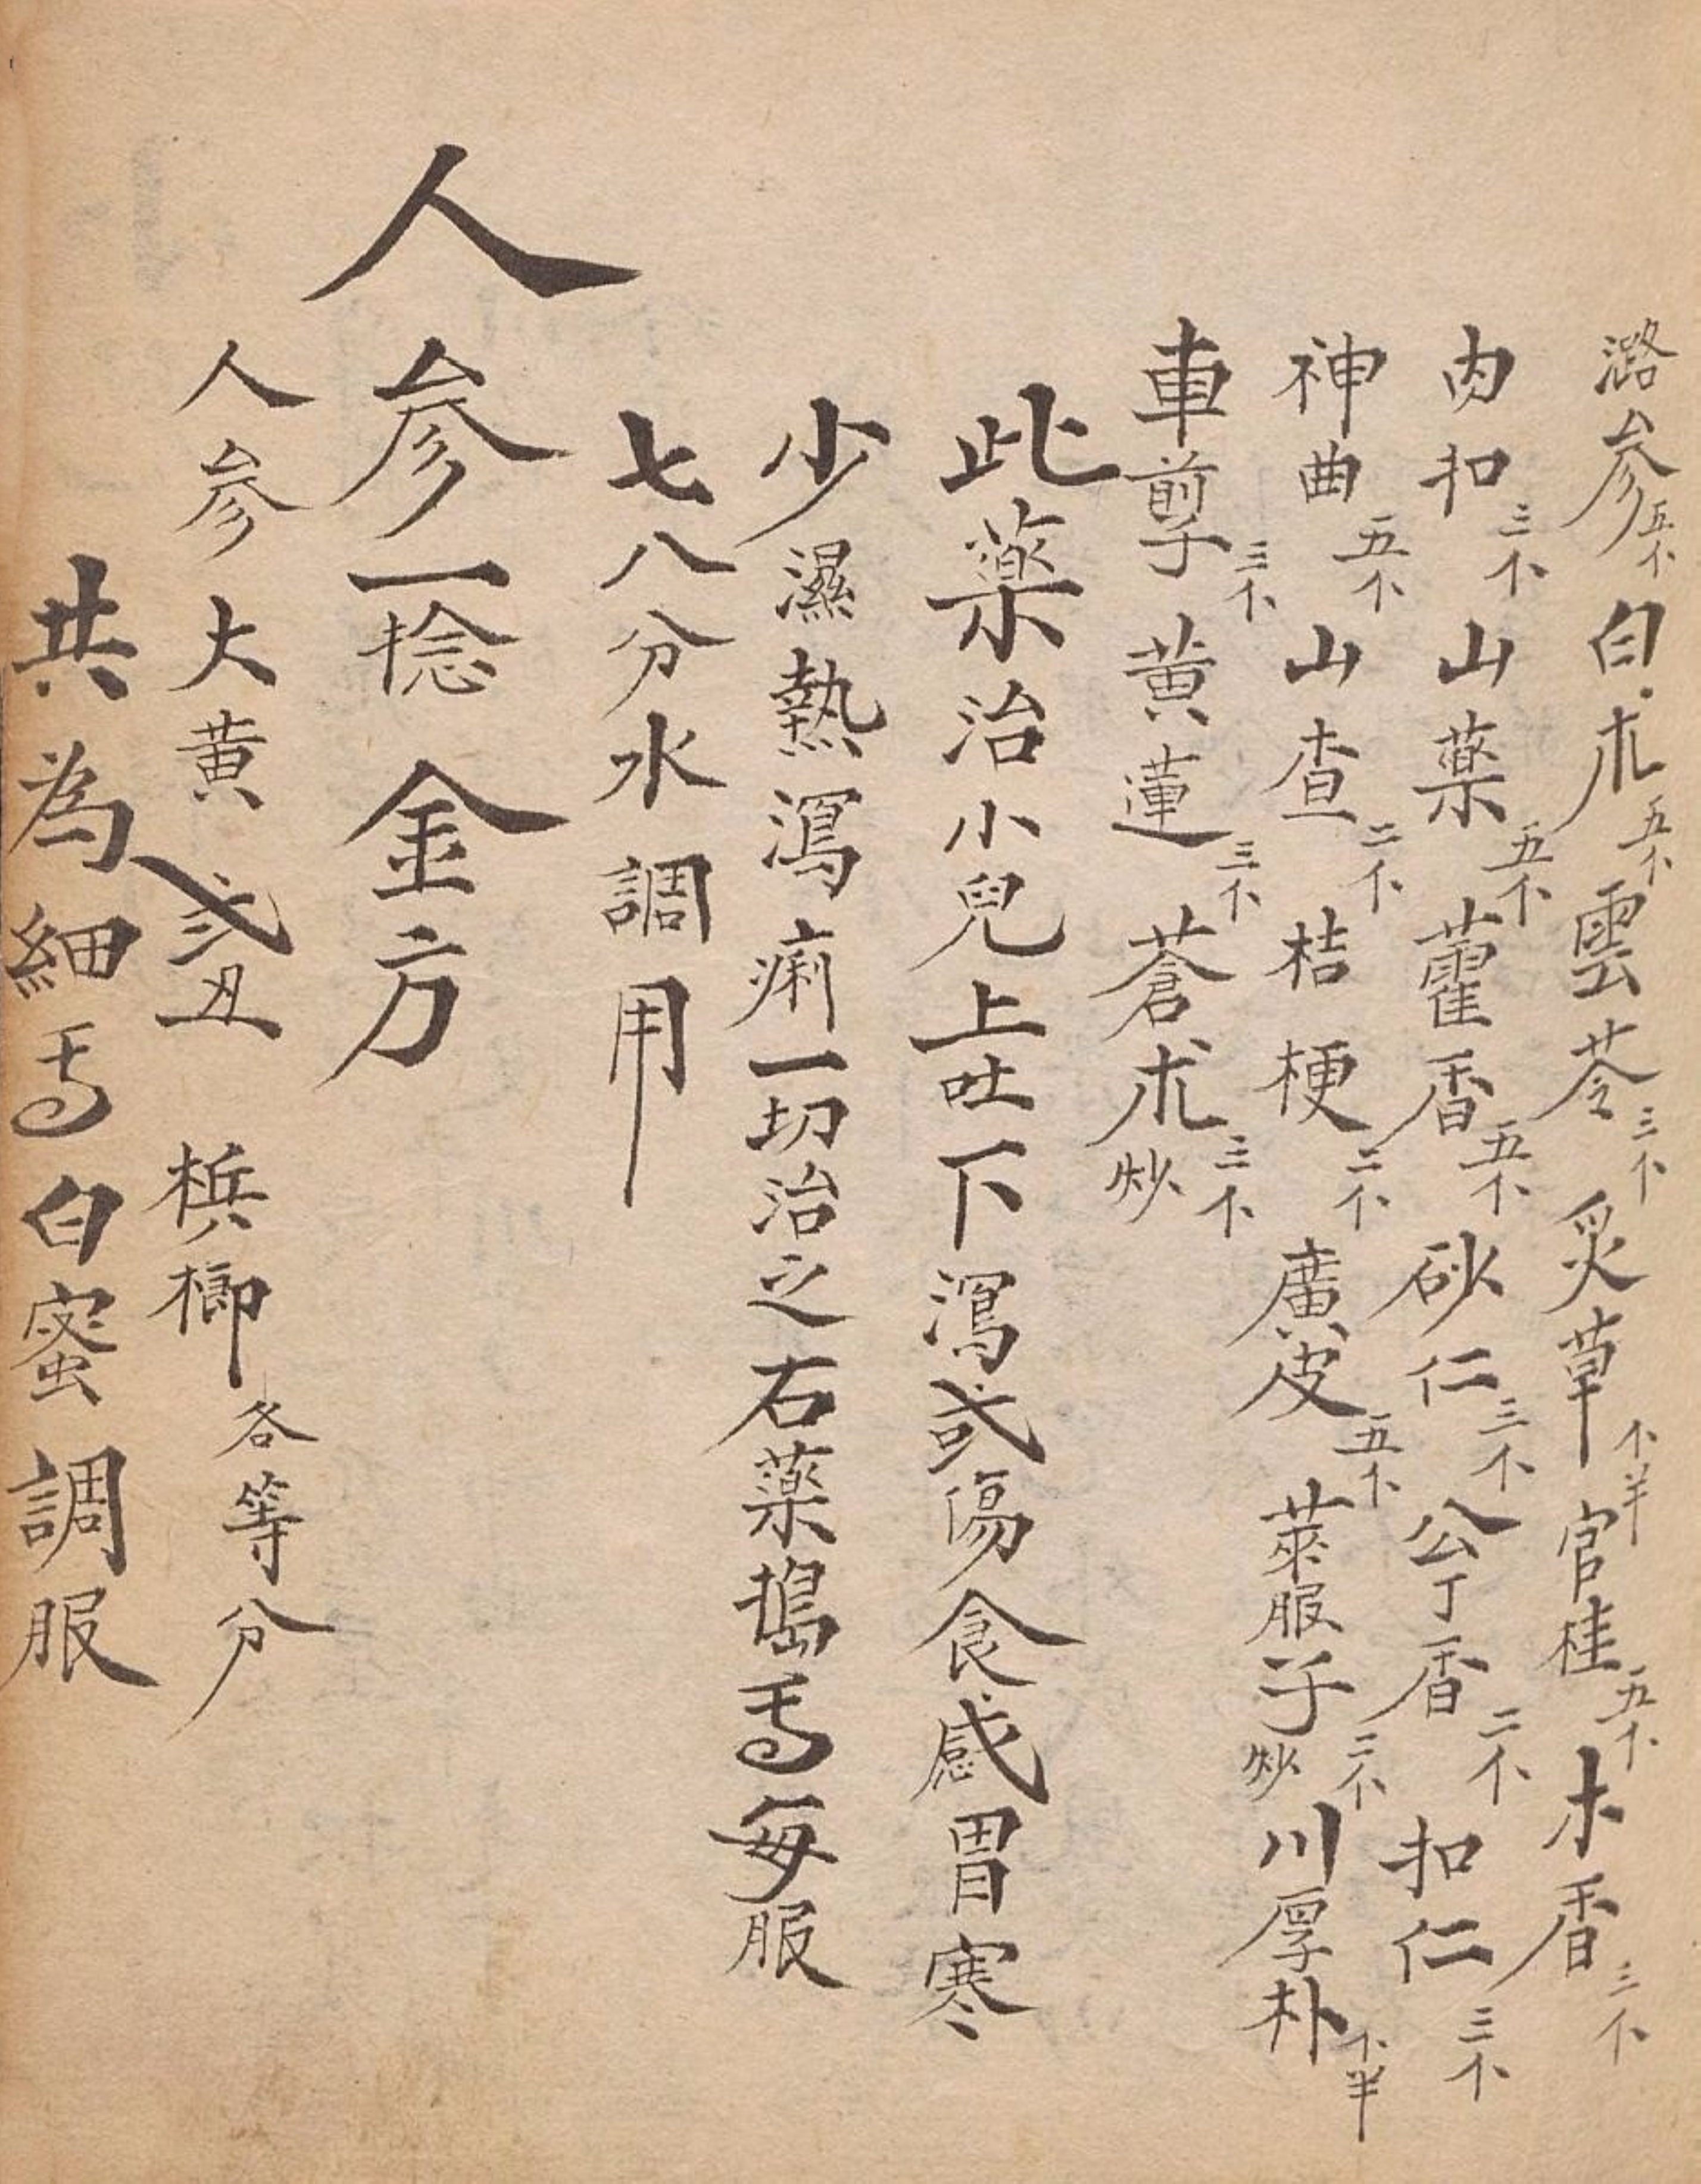 潞参五个白术五个雲苓三个炙草个半官桂五个木香三个
肉扣三个山藥五个藿香五个砂仁三个公丁香二个扣仁三个
神曲五个山查二个桔梗二个廣皮五个萊服子炒三个川厚朴个半
車前子三个黃蓮三个蒼术炒三个
此藥治小兒上吐下瀉或傷食感冐寒
少濕熱瀉痢一切治之右藥搗丐每服
七八分水調用
人参一捻金方
人参大黄弍丑槟榔各等分
共為細丐白蜜調服